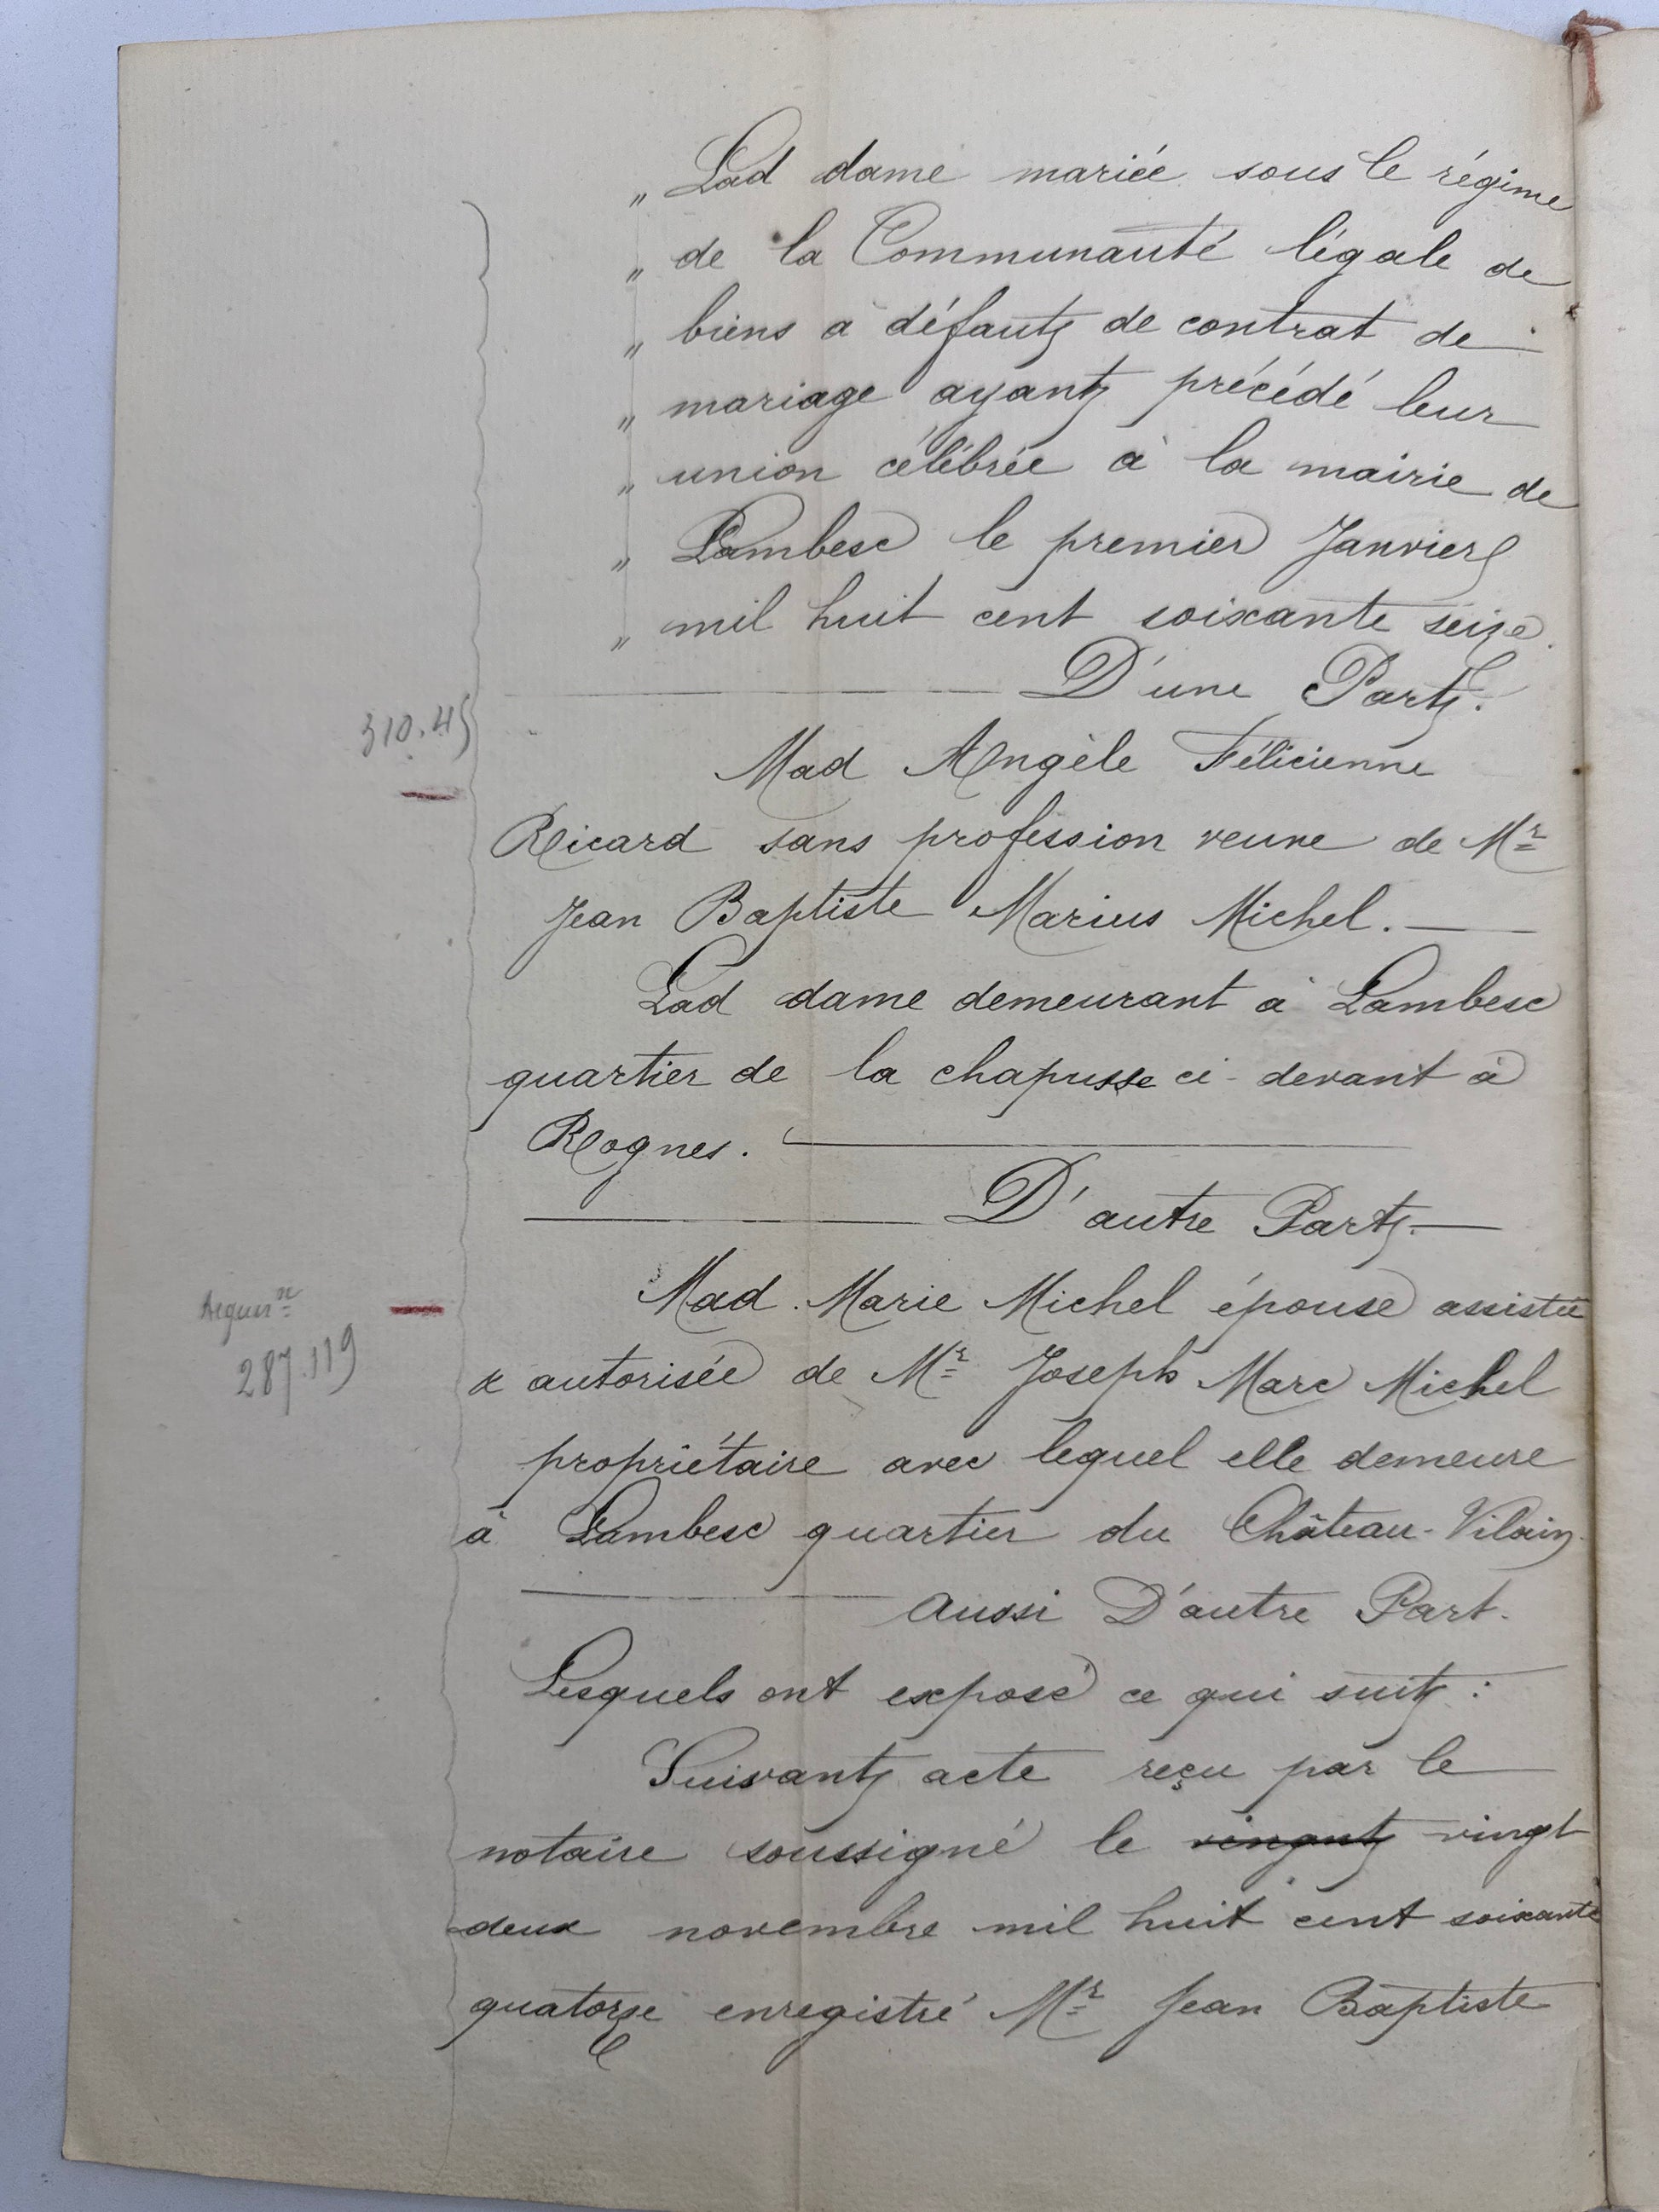 „ Lad dame mariée sous le régime
„ de la Communauté légale de
„ biens à défaut de contrat de
„ mariage ayant précédé leur
„ union célébrée à la mairie de
„ Lambesc le premier Janvier
„ mil huit cent soixante seize.
D'une Part.
310.45
Mad Angèle Félicienne
Ricard sans profession veuve de Mr
Jean Baptiste Marius Michel.
Lad dame demeurant à Lambesc
quartier de la chapusse ci-devant à
Rognes.
D'autre Part.
Mad. Marie Michel épouse assistée
& autorisée de Mr Joseph Marc Michel
287.119
propriétaire avec lequel elle demeure
à Lambesc quartier du Château-Vilain.
aussi D'autre Part.
Lesquels ont exposé ce qui suit :
Suivant acte reçu par le
notaire soussigné le vingt vingt
deux novembre mil huit cent soixante
quatorze enregistré Mr Jean Baptiste